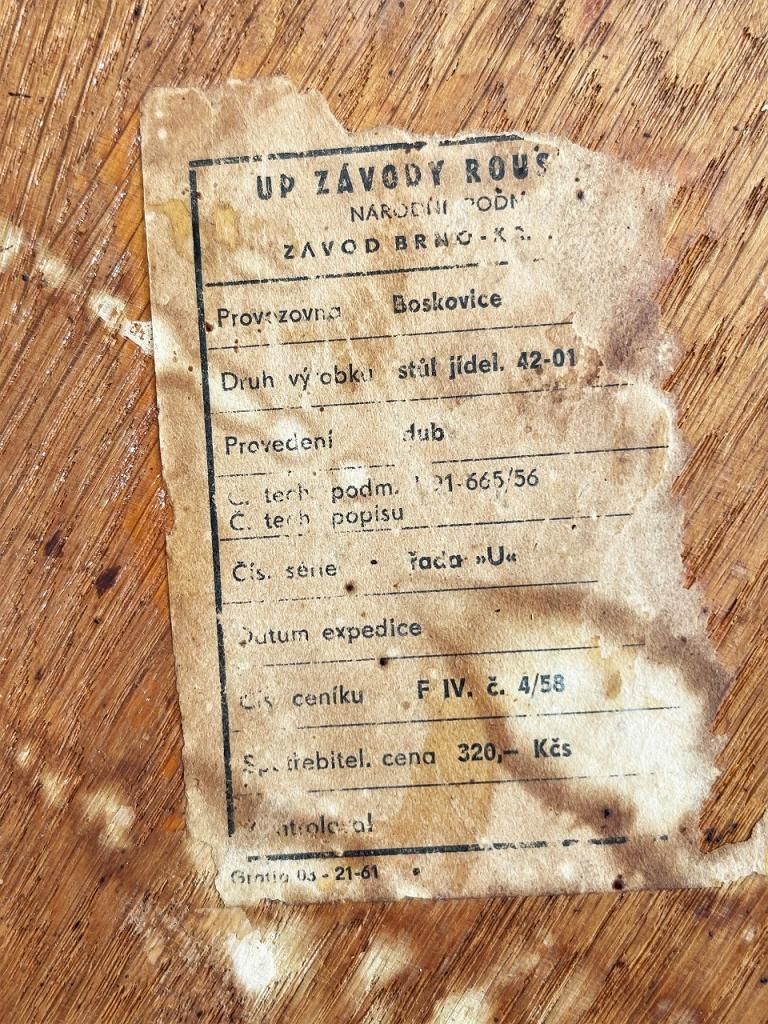 UP ZÁVODY ROUS
NÁRODNÍ PODN
ZÁVOD BRNO-K
Provozovna Boskovice
Druh výrobku stůl jídel. 42-01
Provedení dub
Č. tech. podm. 91-665/56
Č. tech popisu
Čís. série řada »U«
Datum expedice
Čís. ceníku F IV. č. 4/58
Spotřebitel. cena 320,— Kčs
Kontroloval
Grafia 03 - 21-61